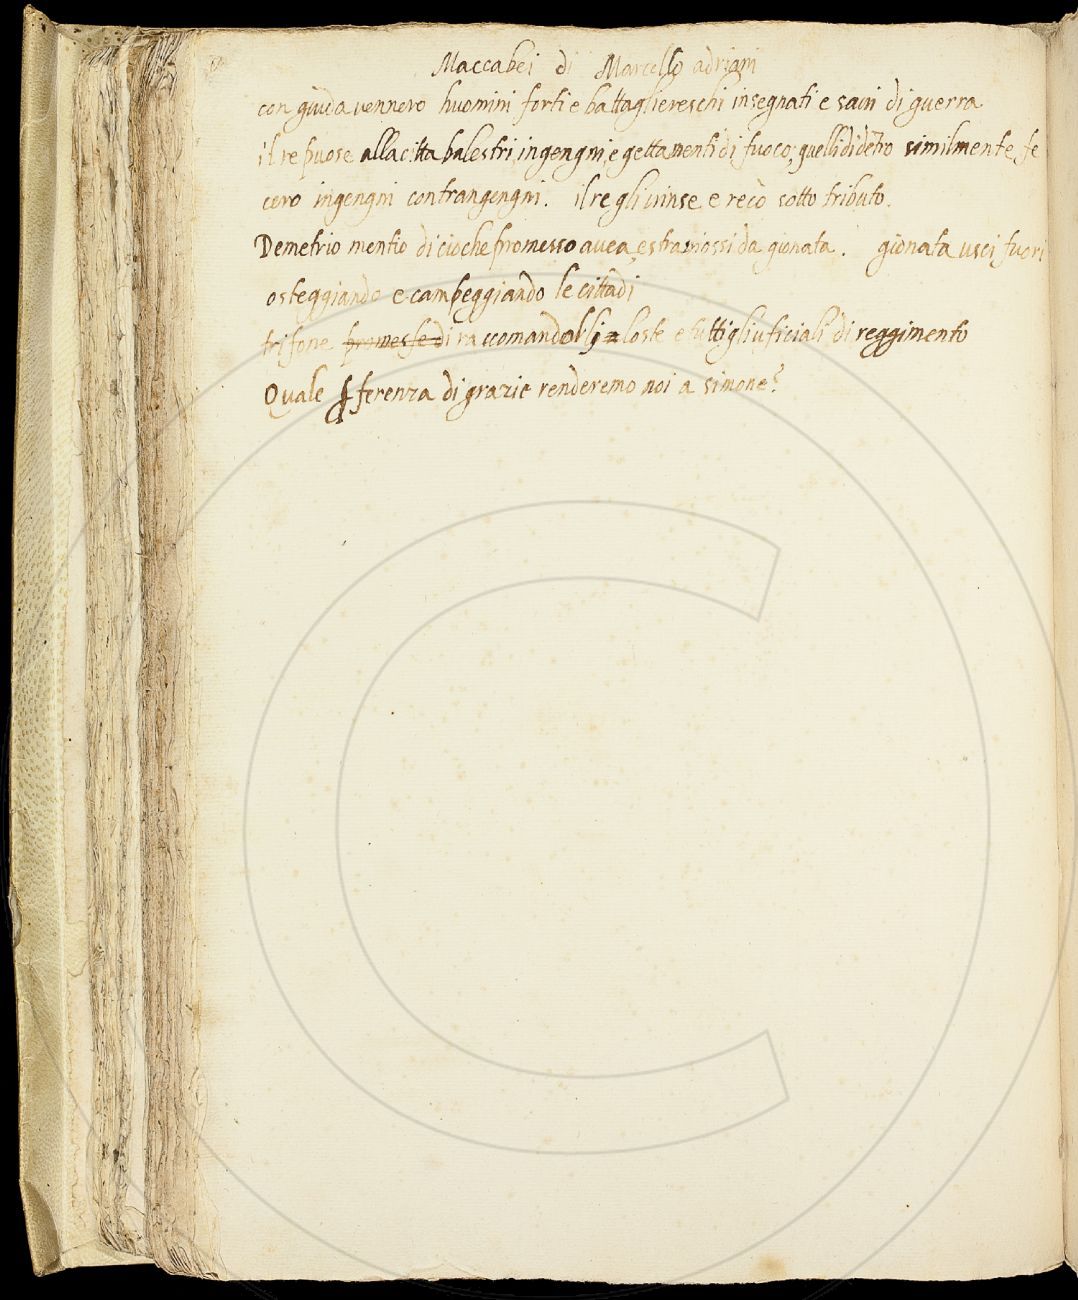 Maccabei di Marcello adriani
con giuda vennero huomini forti e battagliereschi insegnati e savi di guerra
il re puose alla citta balestri, ingengni, e gettamenti di fuoco; quelli didẽtro similmente fe
cero ingengni contrangengni. il re gli vinse e recò sotto tributo.
Demetrio mentio di cioche promesso avea, e straniossi da gionata. gionata usci fuori
osteggiando e campeggiando le cittadi
trifone promesse di raccomandolli loste e tuttigli uficiali di reggimento
Quale ꝓferenza di grazie renderemo noi a simone?